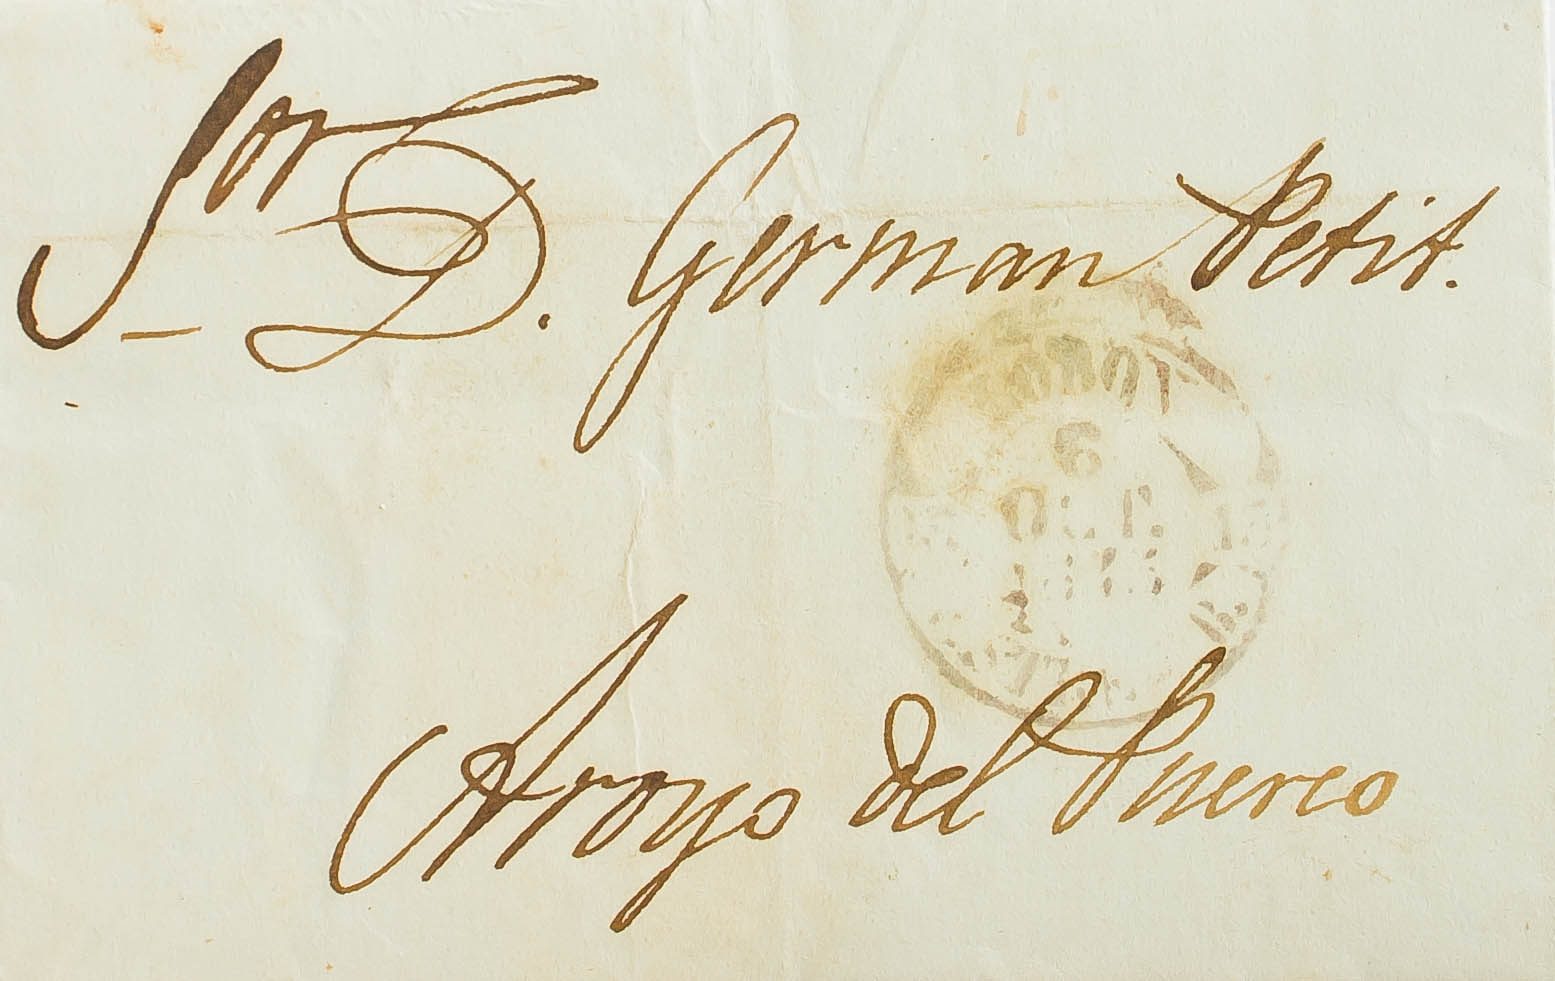 Sor D. German Petit.
6
OCT.
Arroyo del Puerco